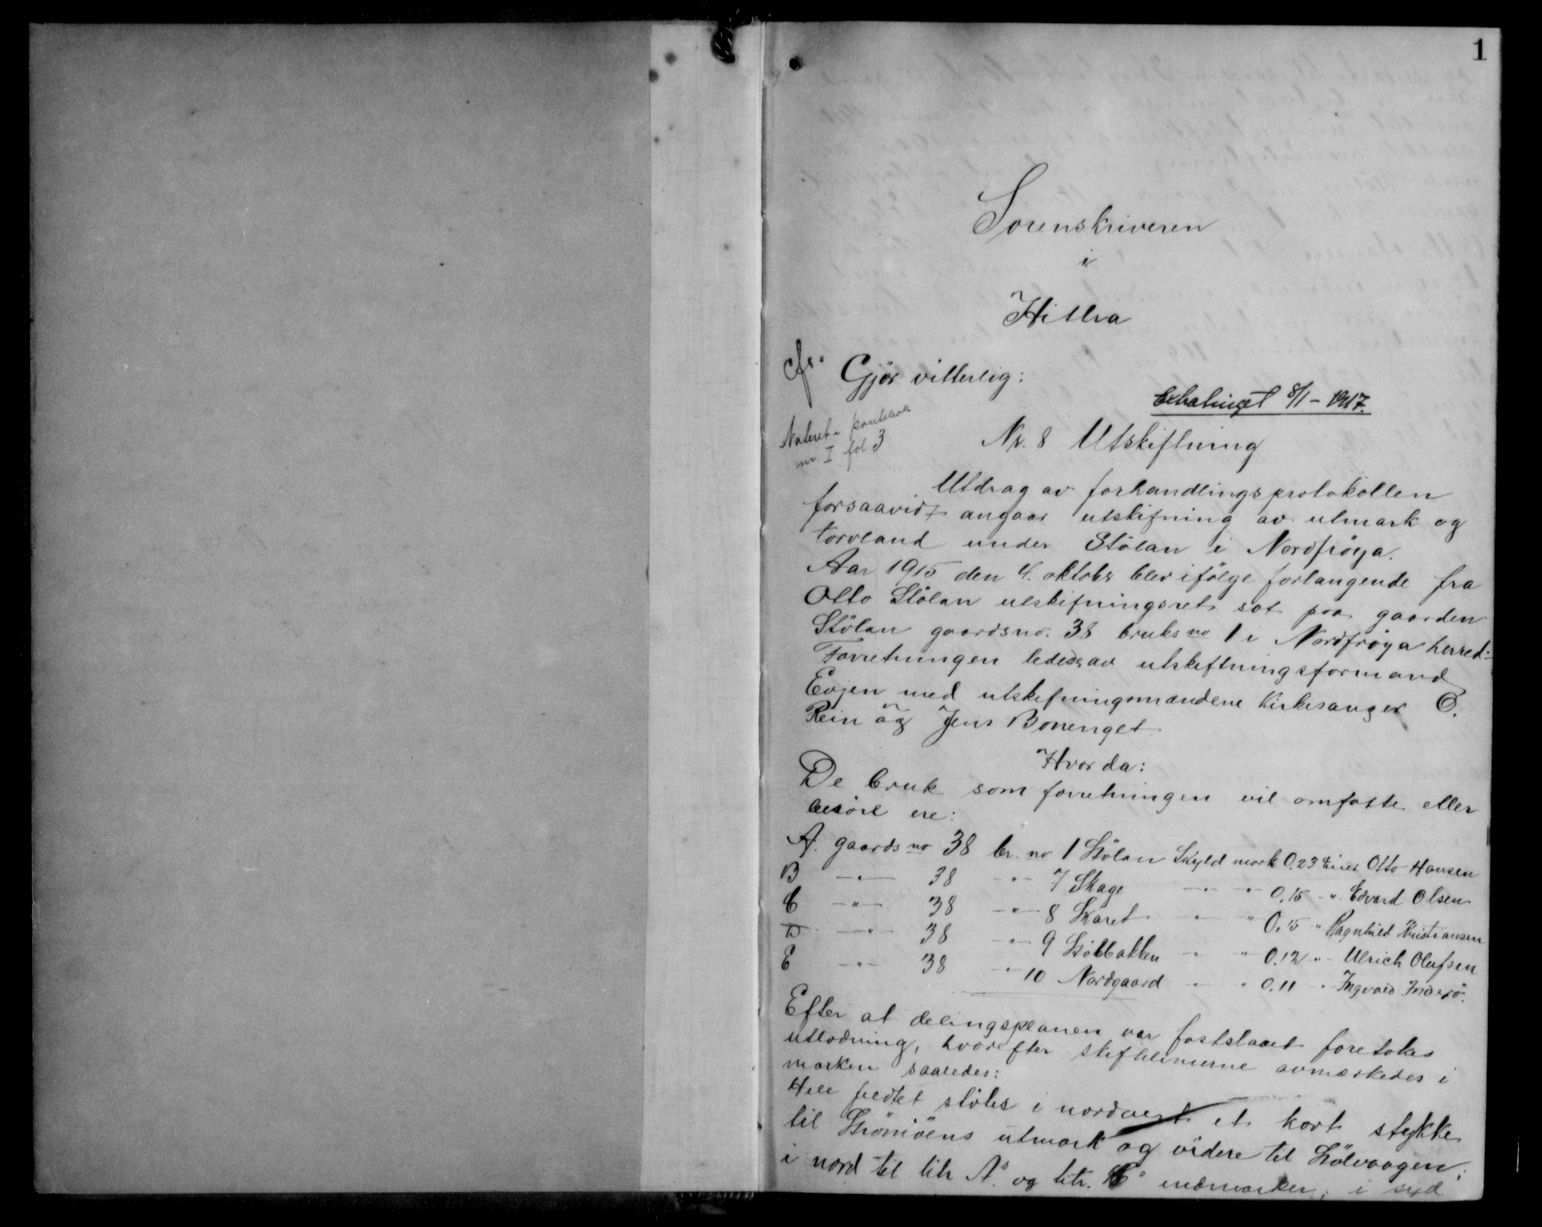 1
Sorenskriveren
i
Hitra
cfr. Gjör vitterlig:
Extratinget 8/1 - 1917.
Noteret i pantebok
nr. I fol 3
Nr. 8 Utskiftning
Utdrag av forhandlingsprotokollen
forsaavidt angaar utskifning av utmark og
torvland under Stölan i Nordfröya.
Aar 1915 den 4. oktobr blev ifölge forlangende fra
Otto Stölan utskifningsret sat paa gaarden
Stölan gaardsno. 38 bruksno 1 i Nordfröya herred:
Forretningen lededes av utskiftningsformand
Evjen med utskifningsmændene kirkesanger O.
Rein og Jens Bonenget
Hvorda:
De bruk som forretningen vil omfatte eller
beröre ere:
A. gaards no 38 br. no 1 Stölan Skyld mark 0,23 Eier Otto Hansen
B -"- 38 -"- 7 Skage -"- " 0,15 -"- Edvard Olsen
C -"- 38 -"- 8 Skaret -"- " 0,15 " Ragnhild Kristiansen
D -"- 38 -"- 9 Stölbakken " " 0,12 -"- Ulrich Olufsen
E -"- 38 " 10 Nordgaard " " 0,11 " Ingvald
Efter at delingsplanen var fastslaaet foretokes
utlodning, hvorefter skiftelinierne avmærkedes i
marken saaledes:
Hele feltet stöter i nordvest et kort stykke
til utmark og videre til Stölvaagen;
i nord til litr A. og litr. indmarker; i syd